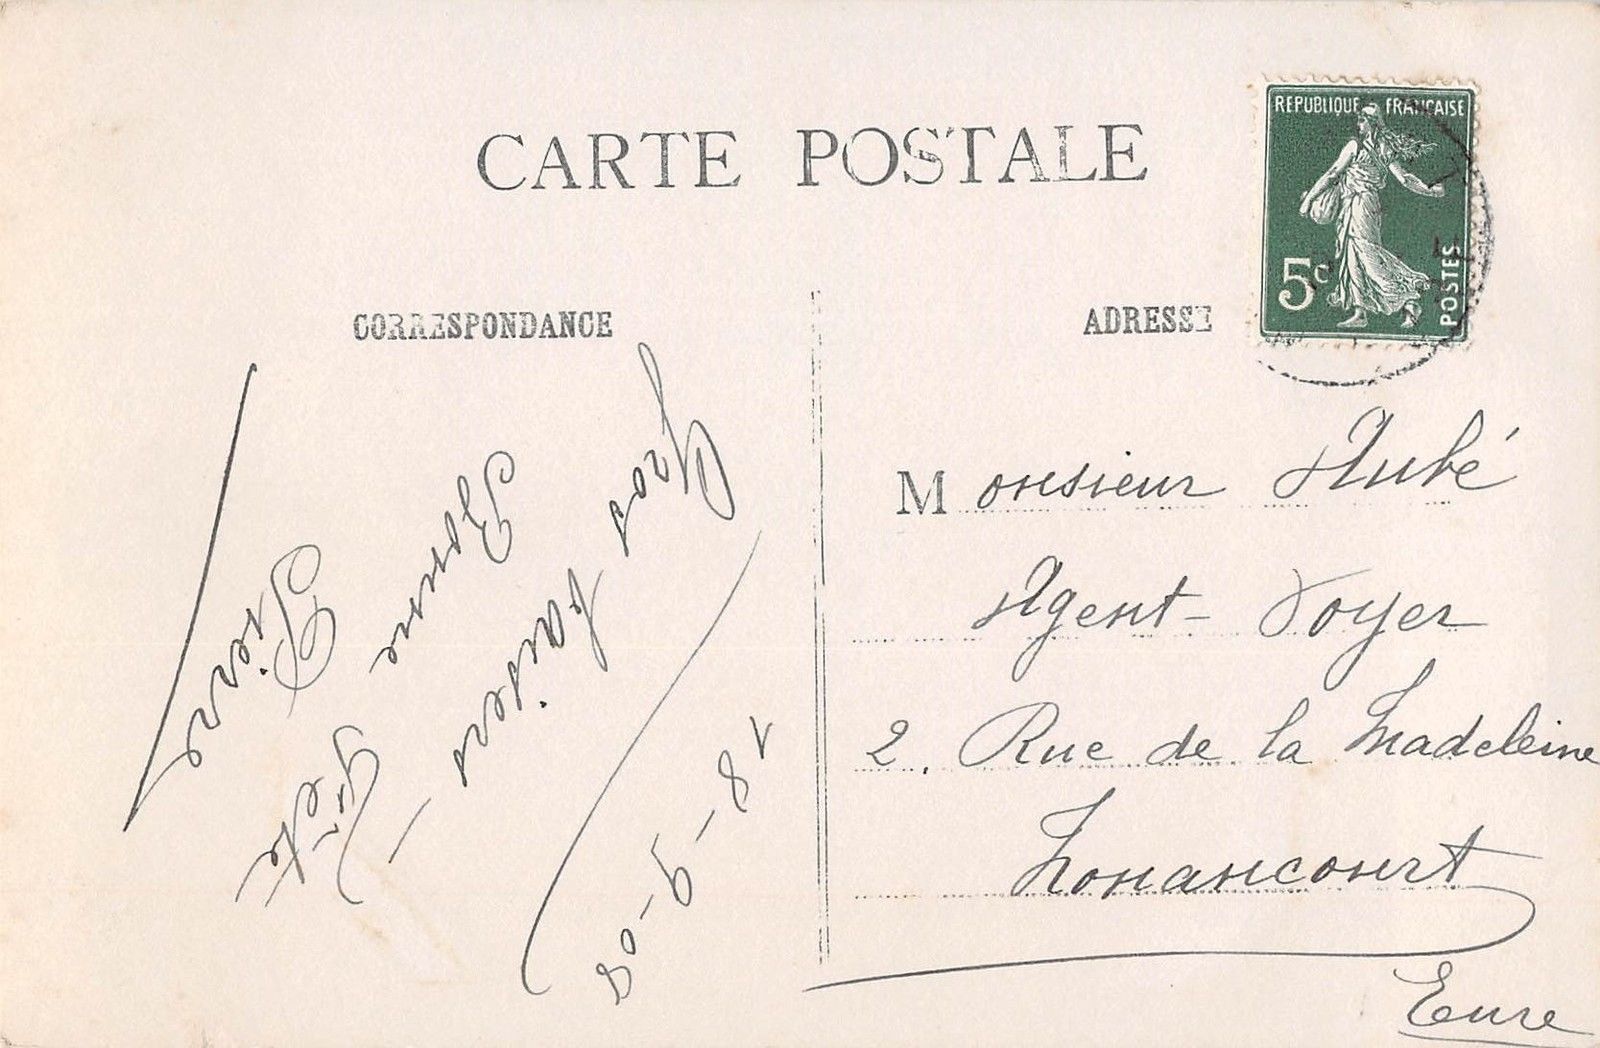 CARTE POSTALE
REPUBLIQUE FRANÇAISE
5c
POSTES
CORRESPONDANCE
ADRESSE
18-9-08
Gros baisers -
Bonne fête
Pierre
Monsieur Aubé
Agent-Voyer
2, Rue de la Madeleine
Nonancourt
Eure